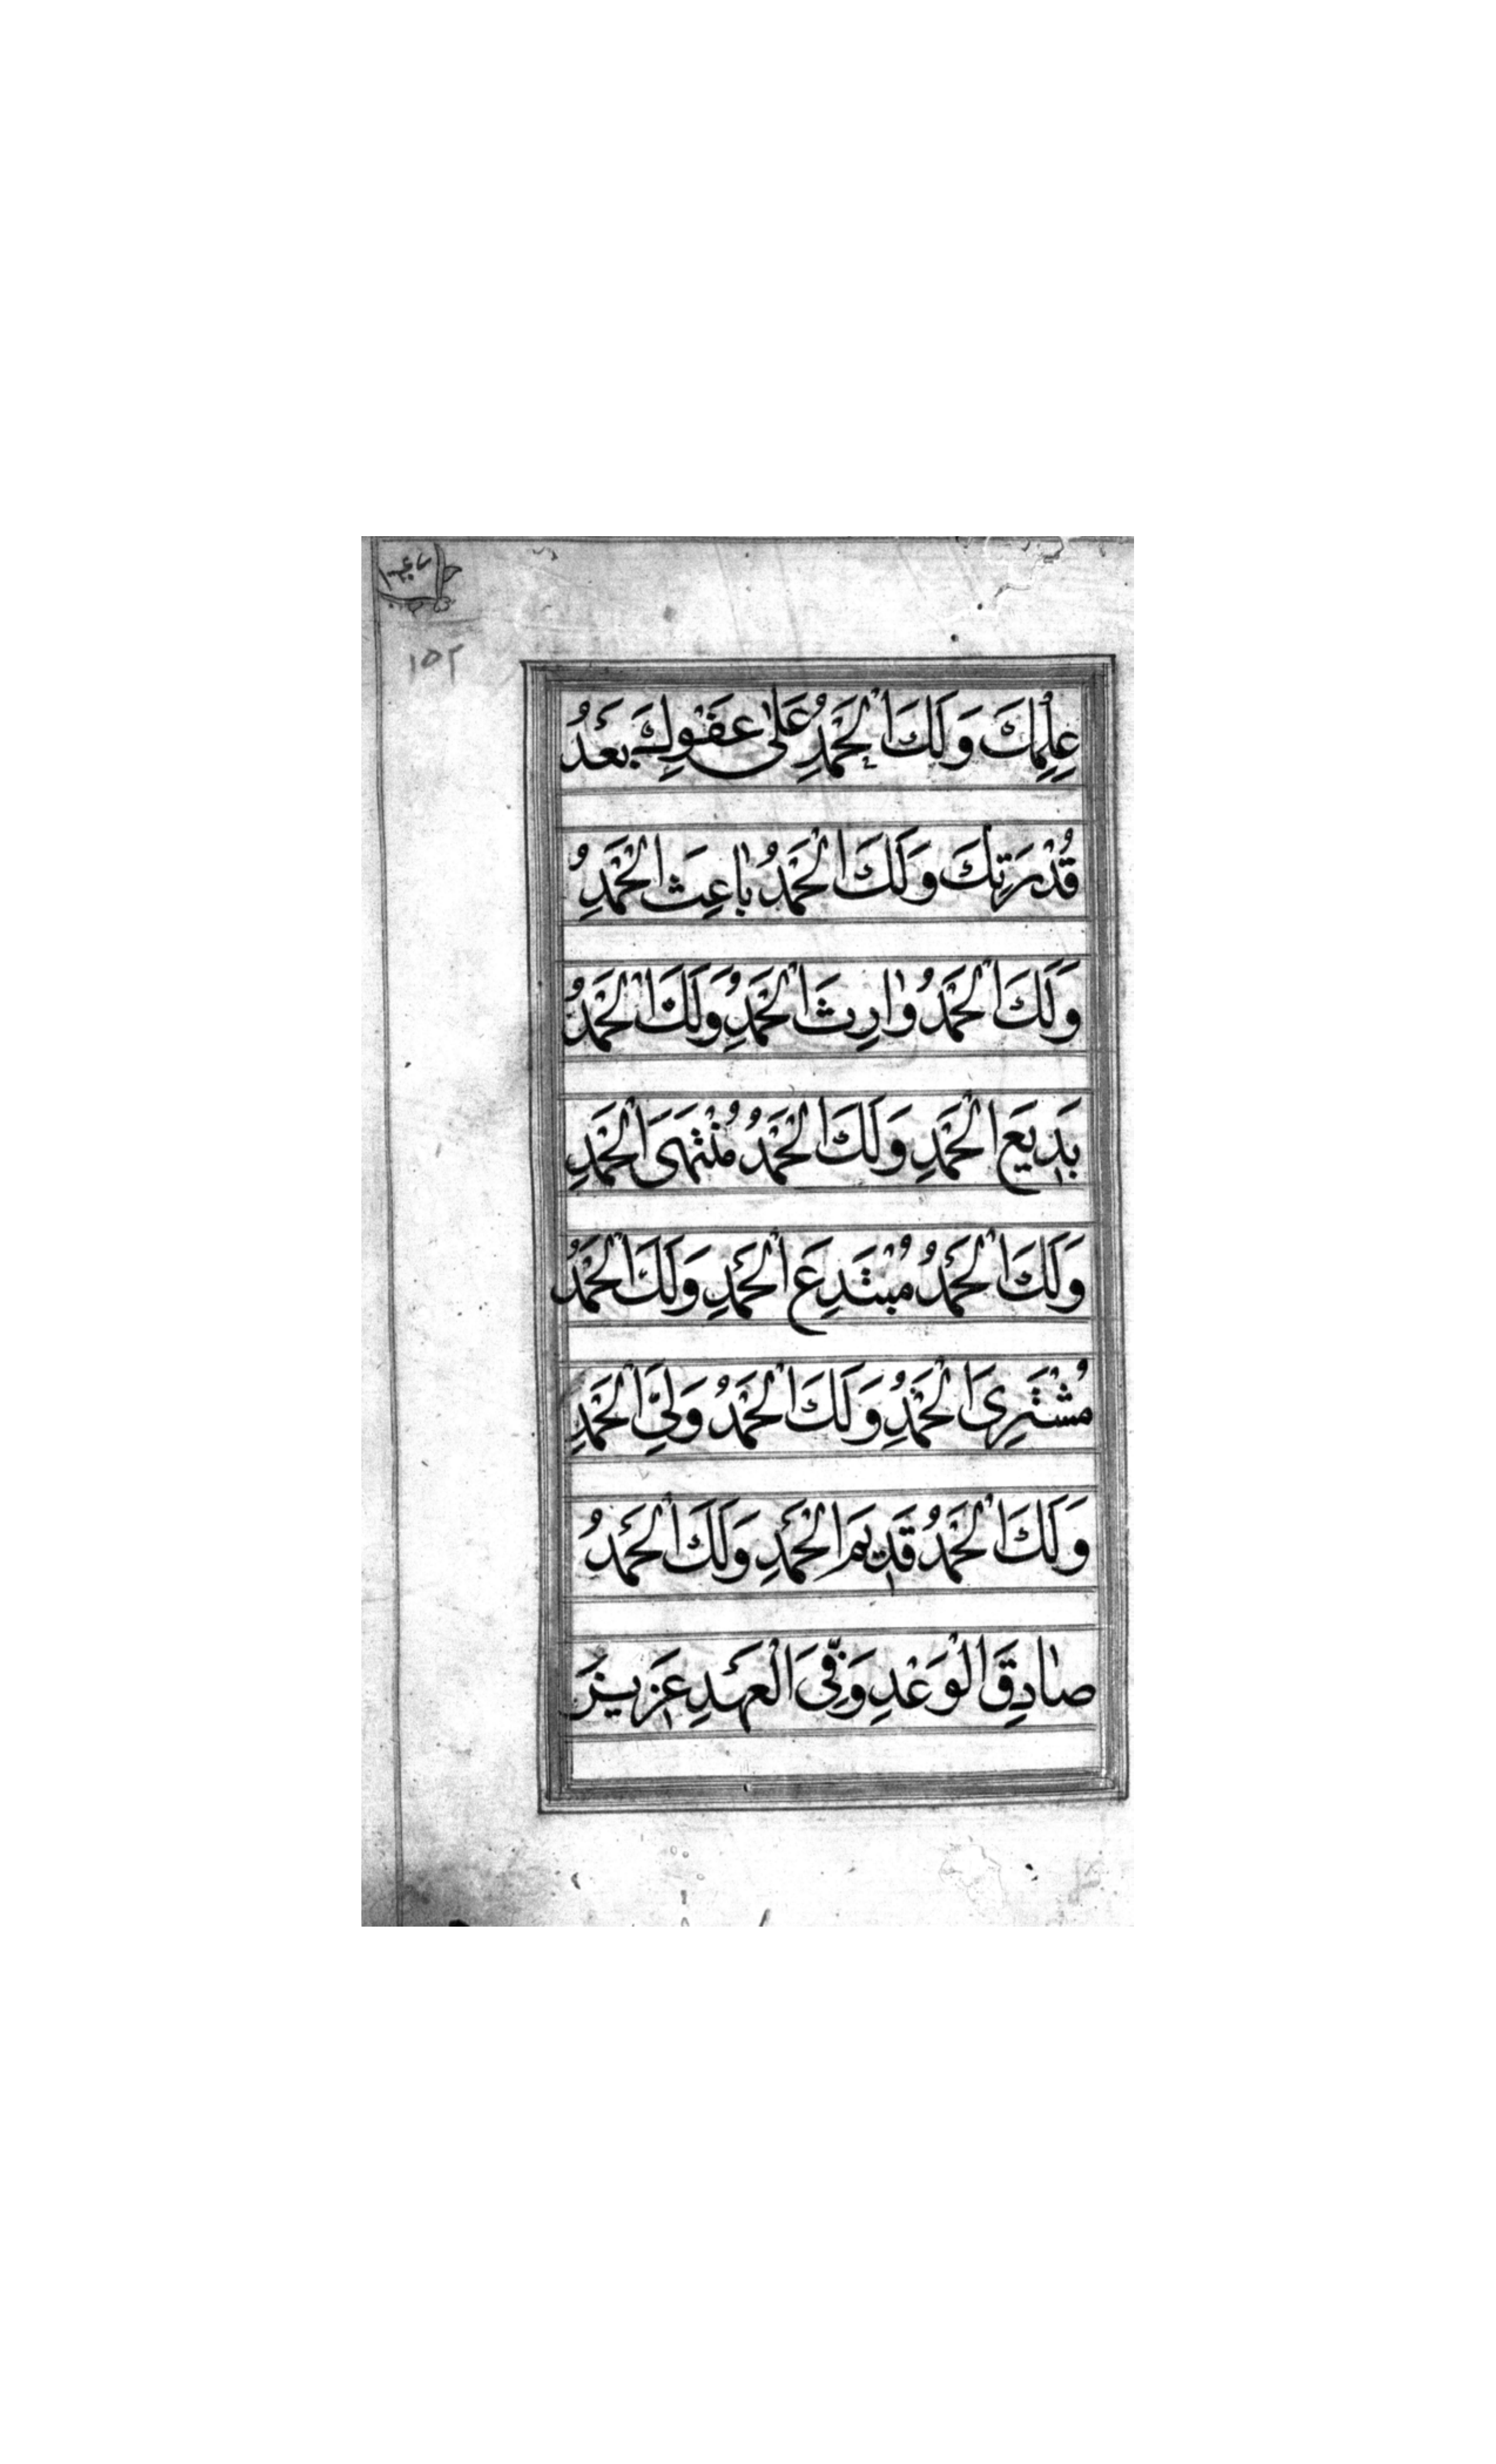 ١٥٢
عِلْمِكَ وَلَكَ الْحَمْدُ عَلٰى عَفْوِكَ بَعْدَ
قُدْرَتِكَ وَلَكَ الْحَمْدُ بَاعِثَ الْحَمْدِ
وَلَكَ الْحَمْدُ وَارِثَ الْحَمْدِ وَلَكَ الْحَمْدُ
بَدِيعَ الْحَمْدِ وَلَكَ الْحَمْدُ مُنْتَهَى الْحَمْدِ
وَلَكَ الْحَمْدُ مُبْتَدِعَ الْحَمْدِ وَلَكَ الْحَمْدُ
مُشْتَرِىَ الْحَمْدِ وَلَكَ الْحَمْدُ وَلِيَّ الْحَمْدِ
وَلَكَ الْحَمْدُ قَدِيمَ الْحَمْدِ وَلَكَ الْحَمْدُ
صَادِقَ الْوَعْدِ وَفِىَّ الْعَهْدِ عَزِيزَ